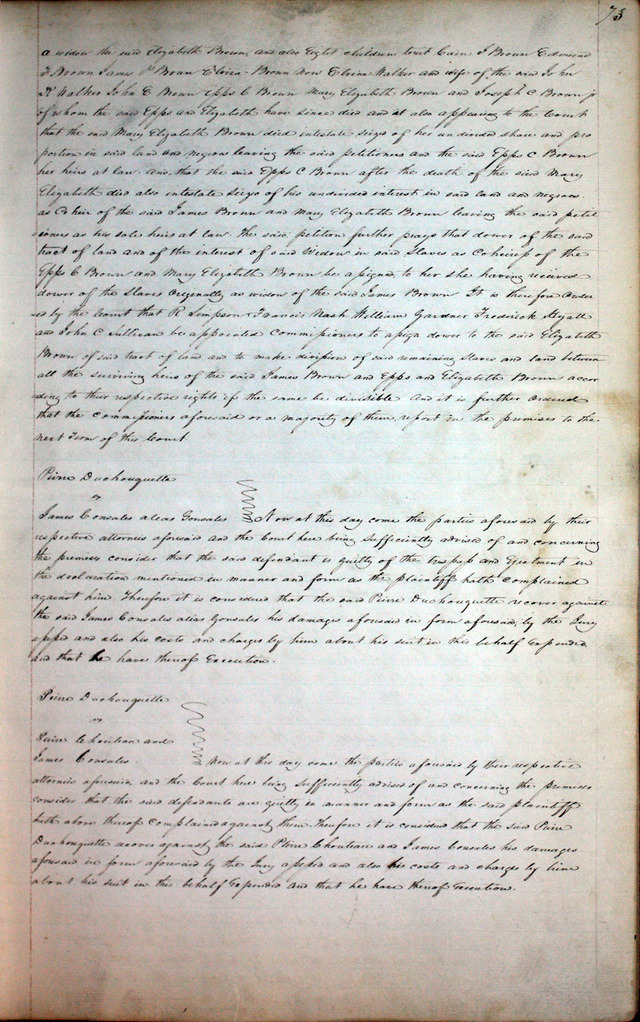 73
a widow the said Elizabeth Brown and also Eight children towit Cain J Brown Edmond
F Brown James P Brown Brown now Walker and wife of the said John
H Walker John E Brown Epps C Brown Mary Elizabeth Brown and Joseph C Brown jr
of whom the said Epps and Elizabeth have since died and it also appearing to the Court
that the said Mary Elizabeth Brown died intestate siezo of her undivided share and pro
portion in said land and negroes leaving the said petitioners and the said Epps C Brown
her heirs at law And that the said Epps C Brown after the death of the said Mary
Elizabeth died also intestate siezo of his undivided interest in said land and negroes
as Coheir of the said James Brown and Mary Elizabeth Brown leaving the said petit
ioners as his sole heirs at law The said petition further prays that dower of the said
tract of land and of the interest of said Widow in said Slaves as Coheiress of the
Epps C Brown and Mary Elizabeth Brown be assigned to her she having received
dower of the Slaves Originally as widow of the said James Brown It is therefore order
ed by the Court that R Simpson Francis Nash William Gardner Frederick Hyatt
and John C Sullivan be appointed Commissioners to assign dower to the said Elizabeth
Brown of said tract of land and to make division of said remaining Slaves and land between
all the surviving heirs of the said James Brown and Epps and Elizabeth Brown accor
ding to their respective rights if the same be divisible And it is further ordered
that the commissioners aforesaid or a majority of them report in the premises to the
next Term of this Court
Pierre Duchouquette
vs
James Consales alias Gonsales Now at this day come the parties aforesaid by their
respective attornies aforesaid and the Court here being Sufficiently advised of and concerning
the premises consider that the said defendant is guilty of the trespass and Ejectment in
the declaration mentioned in manner and form as the plaintiff hath Complained
against him Therefore it is considered that the said Pierre Duchouquette recover against
the said James Consales alias Gonsales his damages aforesaid in form aforesaid, by the Jury
asse͏ssd and also his costs and charges by him about his suit in this behalf Expended
and that he have thereof Execution.
Pierre Duchouquette
vs
Pierre Chouteau and
James Consales. Now at this day come the parties aforesaid by their respective
attornies aforesaid and the Court here being Sufficiently advised of and concerning the premises
consider that the said defendants are guilty in manner and form as the said plaintiff
hath above thereof Complained against them therefore it is considered that the said Pierre
Duchouquette recover against the said Pierre Chouteau and James Consales his damages
aforesaid in form aforesaid by the Jury assessd and also his costs and charges by him
about his suit in this behalf Expended and that he have thereof Execution.